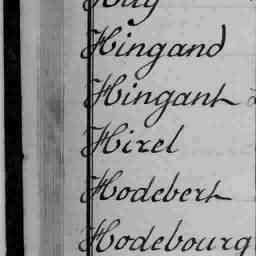 Hingand
Hingant
Hirel
Hodebert
Hodebourg